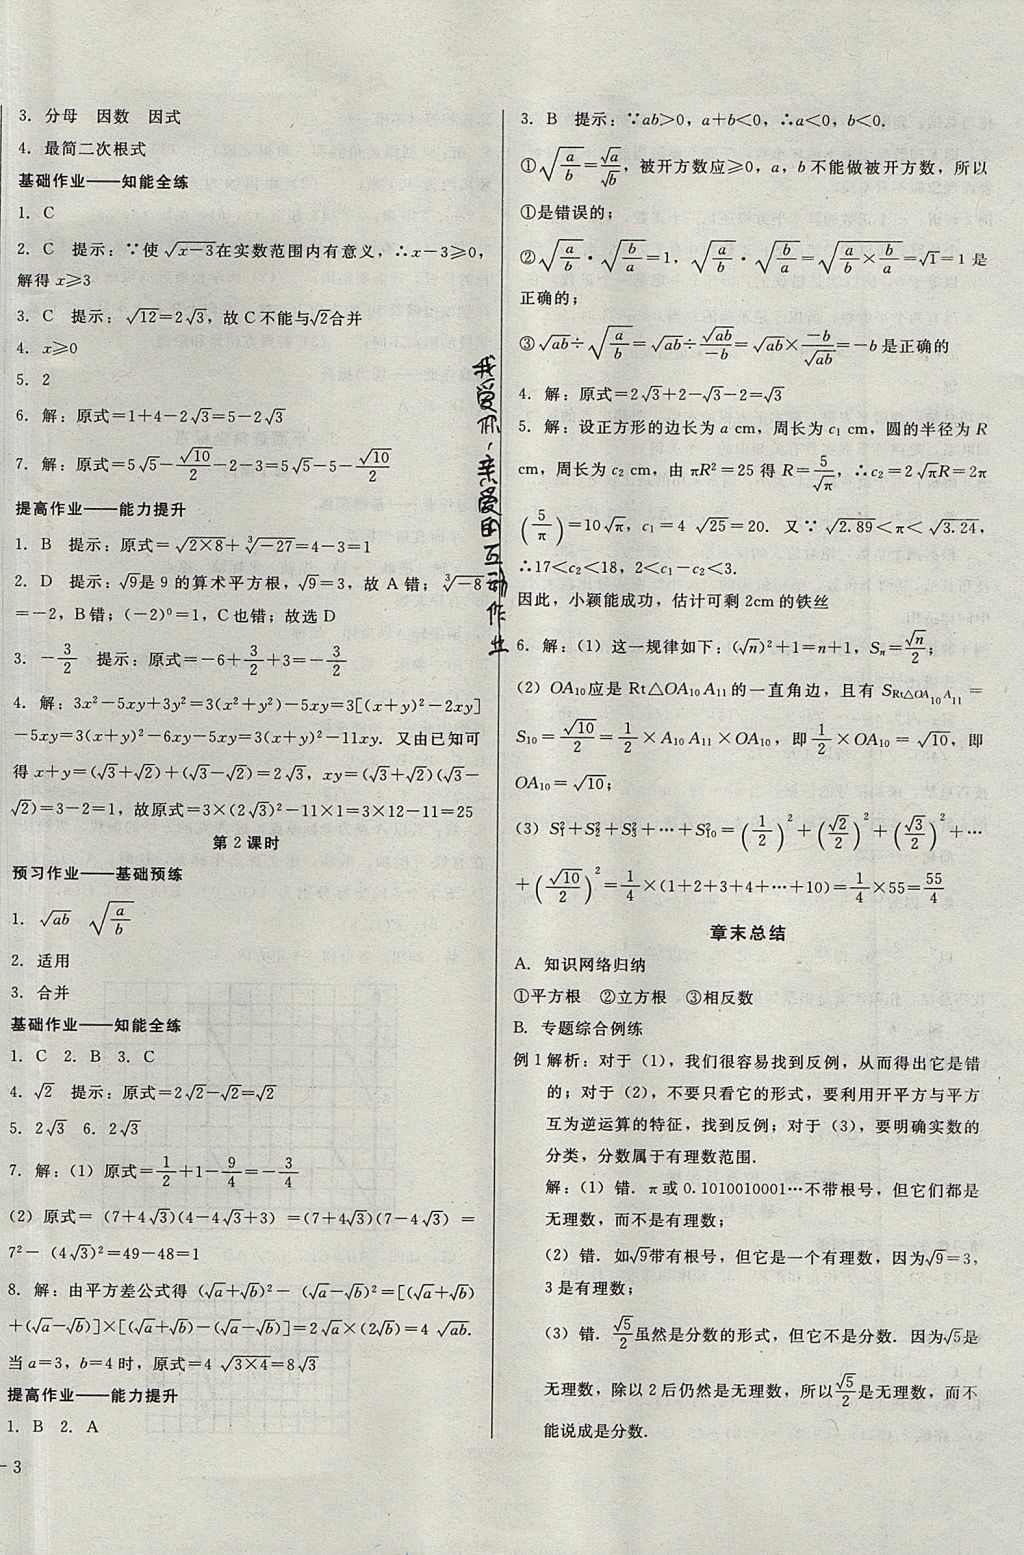 3. 分母　因数　因式
4. 最简二次根式
基础作业——知能全练
1. C
2. C　提示：∵使√(x−3)在实数范围内有意义，∴x−3⩾0,
解得 x⩾3
3. C　提示：√12=2√3，故 C 不能与√2合并
4. x⩾0
5. 2
6. 解：原式=1+4−2√3=5−2√3
7. 解：原式=5√5−√10/2−2−3=5√5−5−√10/2
提高作业——能力提升
1. B　提示：原式=√(2×8)+∛(−27)=4−3=1
2. D　提示：√9是 9 的算术平方根，√9=3，故 A 错；∛−8
=−2，B错；(−2)⁰=1，C 也错；故选 D
3. −3/2　提示：原式=−6+3/2+3=−3/2
4. 解：3x²−5xy+3y²=3(x²+y²)−5xy=3[(x+y)²−2xy]
−5xy=3(x+y)²−6xy−5xy=3(x+y)²−11xy. 又由已知可
得 x+y=(√3+√2)+(√3−√2)=2√3，xy=(√3+√2)(√3−
√2)=3−2=1，故原式=3×(2√3)²−11×1=3×12−11=25
第 2 课时
预习作业——基础预练
1. √(ab)　√(a/b)
2. 适用
3. 合并
基础作业——知能全练
1. C　2. B　3. C
4. √2　提示：原式=2√2−√2=√2
5. 2√3　6. 2√3
7. 解：(1) 原式=1/2+1−9/4=−3/4
(2) 原式=(7+4√3)(4−4√3+3)=(7+4√3)(7−4√3)=
7²−(4√3)²=49−48=1
8. 解：由平方差公式得 (√a+√b)²−(√a−√b)²=[(√a+√b)
+(√a−√b)]×[(√a+√b)−(√a−√b)]=2√a×(2√b)=4√(ab).
当 a=3，b=4 时，原式=4√(3×4)=8√3
提高作业——能力提升
1. B　2. A
3. B　提示：∵ab>0，a+b<0，∴a<0，b<0.
①√(a/b)=√a/√b，被开方数应⩾0，a，b 不能做被开方数，所以
①是错误的；
②√(a/b)·√(b/a)=1，√(a/b)·√(b/a)=√(a/b×b/a)=√1=1 是
正确的；
③√(ab)÷√(a/b)=√(ab)÷√(ab)/−b=√(ab)×−b/√(ab)=−b是正确的
4. 解：原式=2√3+2−√3−2=√3
5. 解：设正方形的边长为 a cm，周长为 c₁ cm，圆的半径为 R
cm，周长为 c₂ cm，由 πR²=25 得 R=5/√π，∴c₂=2√πR=2π
(5/π)=10√π，c₁=4√25=20. 又∵√2.89<π<√3.24,
∴17<c₂<18，2<c₁−c₂<3.
因此，小颖能成功，估计可剩 2cm 的铁丝
6. 解：(1) 这一规律如下：(√n)²+1=n+1，Sₙ=√n/2；
(2) OA₁₀应是 Rt△OA₁₀A₁₁的一直角边，且有 S Rt△OA₁₀A₁₁=
S₁₀=√10/2=1/2×A₁₀A₁₁×OA₁₀，即1/2×OA₁₀=√10，即
OA₁₀=√10；
(3) S₁²+S₂²+S₃²+…+S₁₀²=(1/2)²+(√2/2)²+(√3/2)²+…
+(√10/2)²=1/4×(1+2+3+4+…+10)=1/4×55=55/4
章末总结
A. 知识网络归纳
①平方根　②立方根　③相反数
B. 专题综合例练
例 1 解析：对于(1)，我们很容易找到反例，从而得出它是错
的；对于(2)，不要只看它的形式，要利用开平方与平方
互为逆运算的特征，找到反例；对于(3)，要明确实数的
分类，分数属于有理数范围.
解：(1) 错. π或 0.1010010001…不带根号，但它们都是
无理数，而不是有理数；
(2) 错. 如√9带有根号，但它是一个有理数，因为√9=3,
3 是有理数；
(3) 错. √5/2虽然是分数的形式，但它不是分数. 因为√5是
无理数，除以 2 后仍然是无理数，所以√5/2是无理数，而不
能说成是分数.
我爱你、亲爱的互动作业
− 3